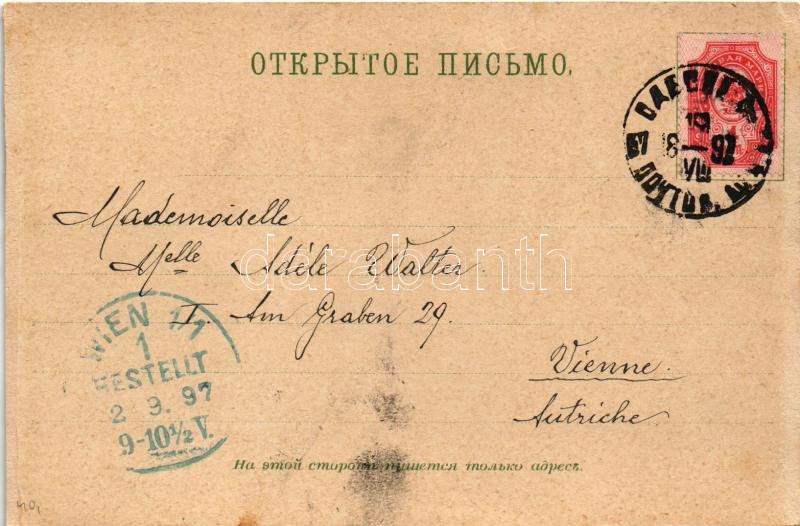 ОТКРЫТОЕ ПИСЬМО.
ОДЕССА
18
VIII
97
Mademoiselle
Melle Adèle Walter.
I Am Graben 29.
Vienne.
Autriche.
WIEN 1/1
1
BESTELLT
2 9. 97
9-10½ V.
На этой сторонѣ пишется только адресъ.
darabanth